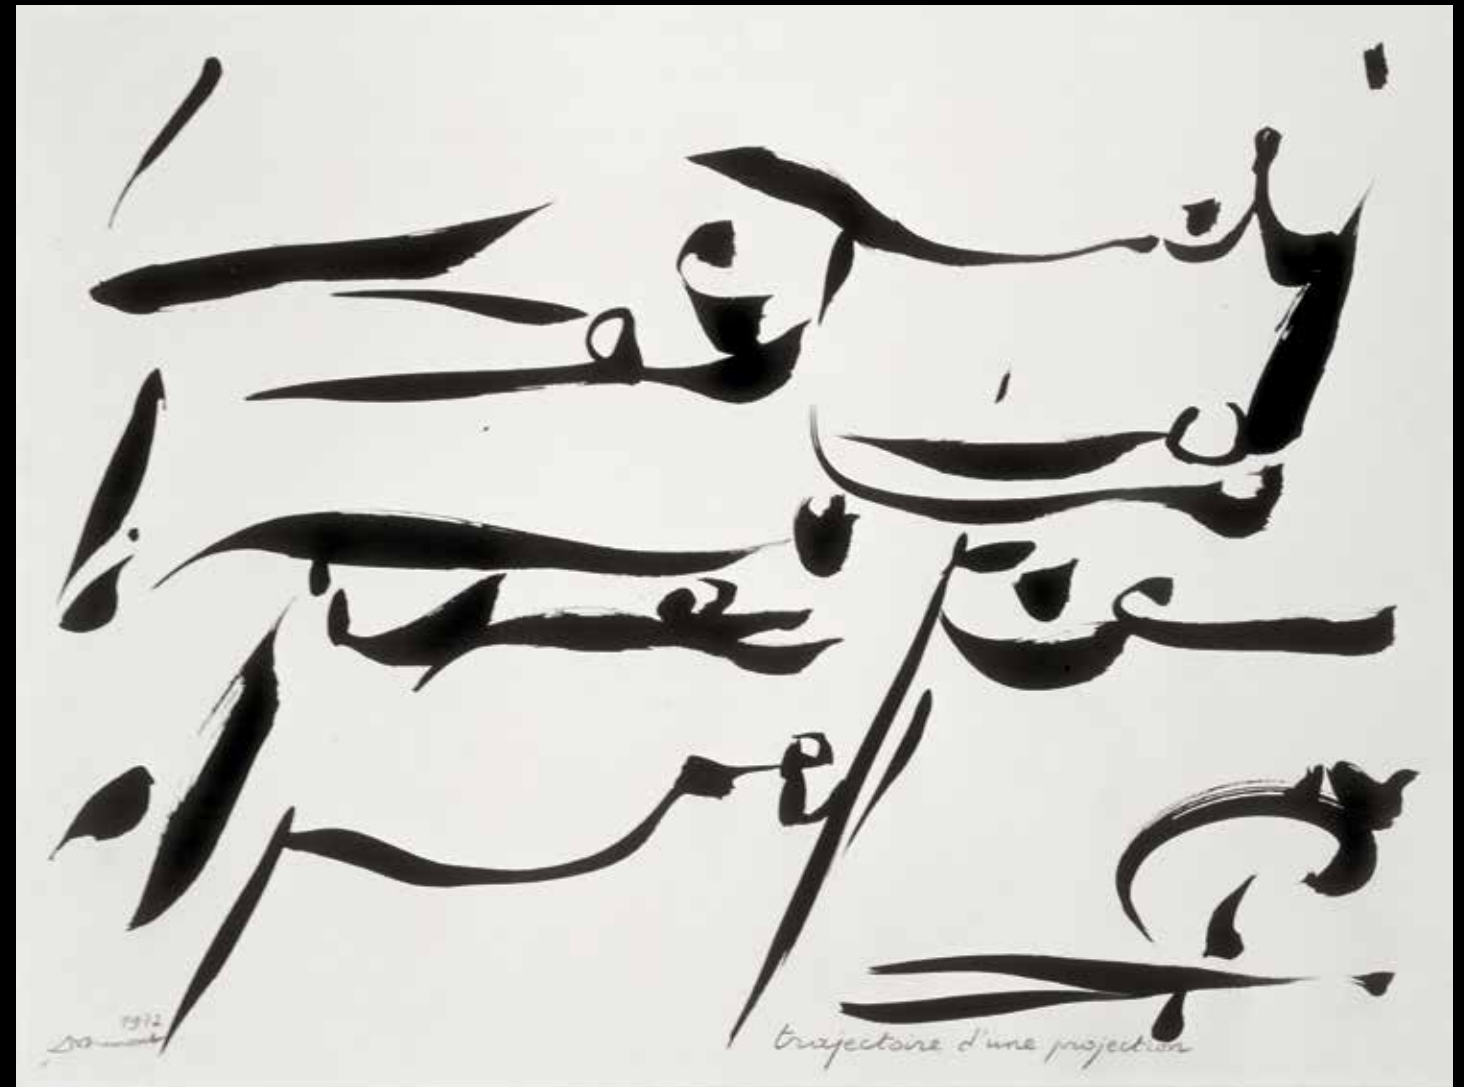 1972
trajectoire d'une projection